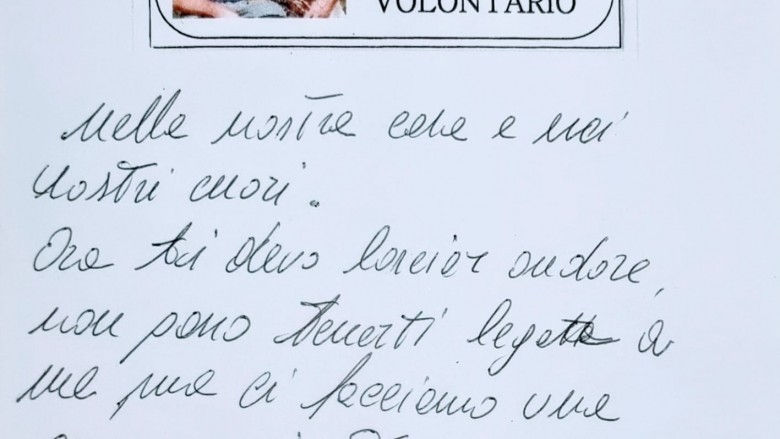 VOLONTARIO
Nella nostra casa e nei
nostri cuori.
Ora ti devo lasciar andare,
non posso tenerti legata a
me ma ci facciamo una